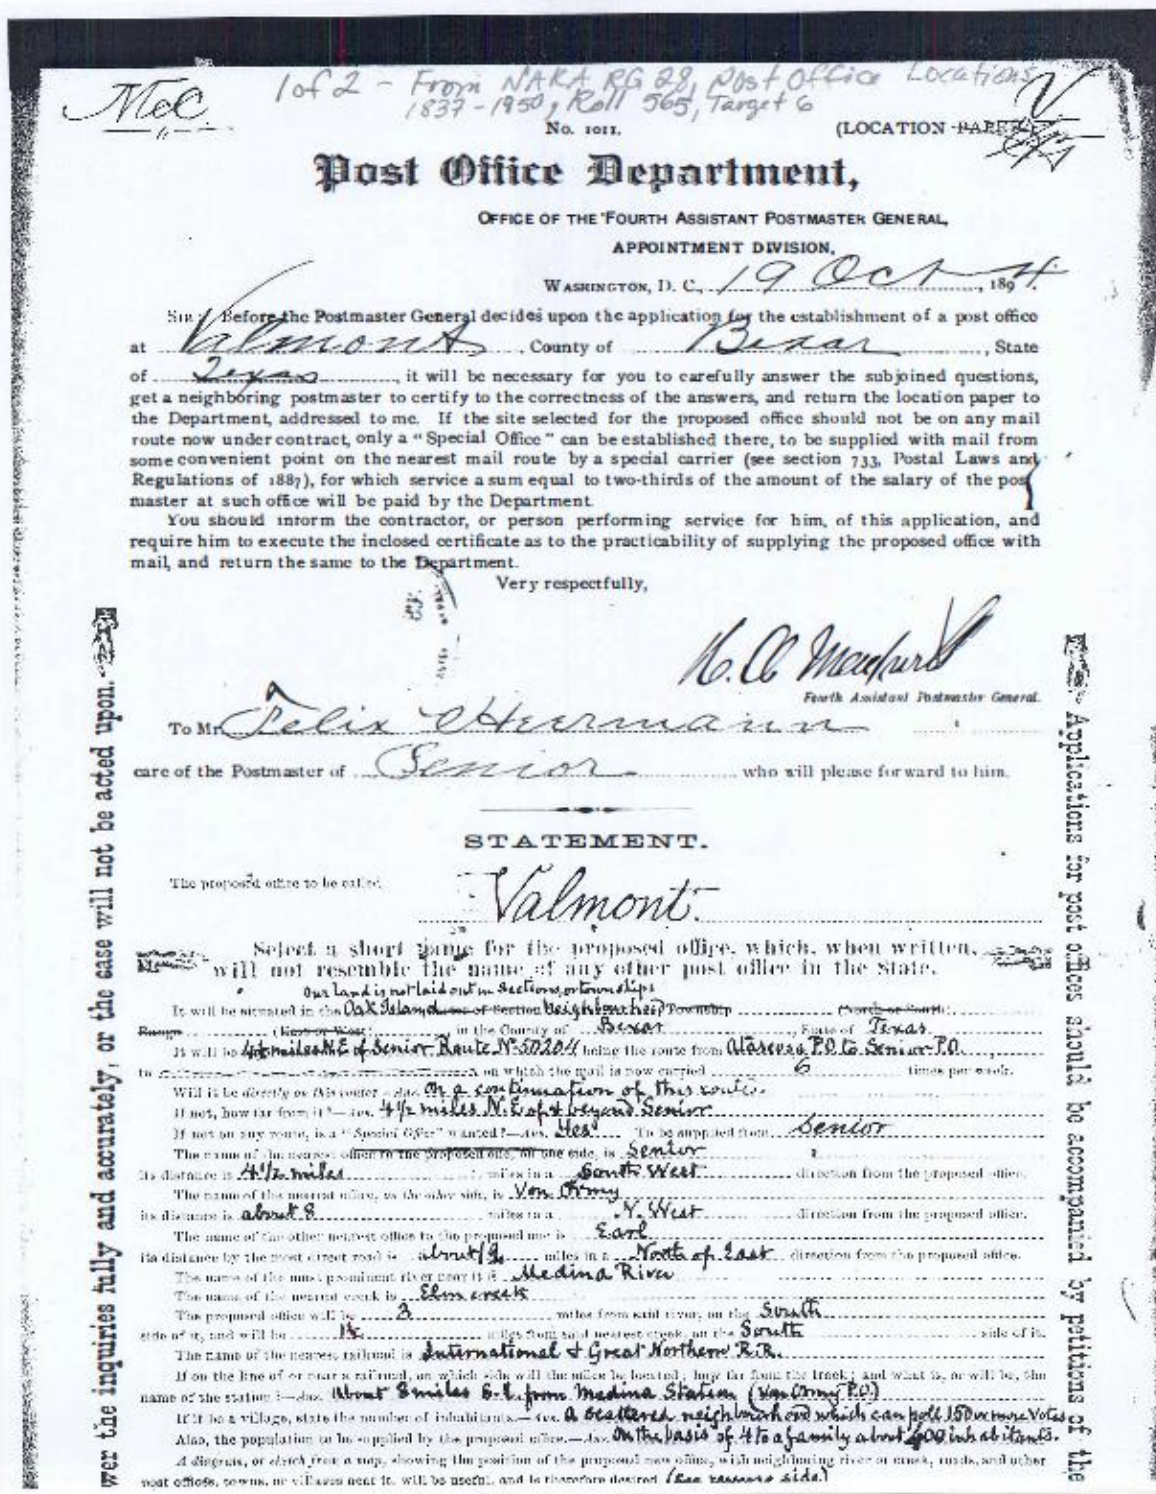 McC
1 of 2 - From NARA RG 28, Post Office Locations
1837-1950, Roll 565, Target 6
No. 1011.
(LOCATION PAPER
Post Office Department,
OFFICE OF THE FOURTH ASSISTANT POSTMASTER GENERAL,
APPOINTMENT DIVISION,
WASHINGTON, D. C., 19 Oct, 1894.
SIR: Before the Postmaster General decides upon the application for the establishment of a post office
at Valmont, County of Bexar, State
of Texas, it will be necessary for you to carefully answer the subjoined questions,
get a neighboring postmaster to certify to the correctness of the answers, and return the location paper to
the Department, addressed to me. If the site selected for the proposed office should not be on any mail
route now under contract, only a "Special Office" can be established there, to be supplied with mail from
some convenient point on the nearest mail route by a special carrier (see section 733, Postal Laws and
Regulations of 1887), for which service a sum equal to two-thirds of the amount of the salary of the post
master at such office will be paid by the Department.
You should inform the contractor, or person performing service for him, of this application, and
require him to execute the inclosed certificate as to the practicability of supplying the proposed office with
mail, and return the same to the Department.
Very respectfully,
Fourth Assistant Postmaster General.
To Mr. Felix Herrmann
care of the Postmaster of Senior who will please forward to him.
STATEMENT.
The proposed office to be called Valmont.
Select a short name for the proposed office, which, when written,
will not resemble the name of any other post office in the State.
Our Land is not laid out in Sections or townships
It will be situated in the Oak Island of Section Neighbourhood Township (North or South)
Range (East or West) in the County of Bexar, State of Texas
It will be 4½ miles N.E of Senior Route No 50204 being the route from Atascosa P.O to Senior P.O.
to on which the mail is now carried 6 times per week.
Will it be directly on this route?—Ans. On a continuation of this route.
If not, how far from it?—Ans. 4½ miles N.E of & beyond Senior
If not on any route, is a "Special Office" wanted?—Ans. Yes To be supplied from Senior
The name of the nearest office to the proposed one, on one side, is Senior
its distance is 4½ miles miles in a South West direction from the proposed office.
The name of the nearest office, on the other side, is Von Ormy
its distance is about 8 miles in a N. West direction from the proposed office.
The name of the other nearest office to the proposed one is Earl
its distance by the most direct road is about miles in a North of East direction from the proposed office.
The name of the most prominent river near it is Medina River
The name of the nearest creek is Elm creek
The proposed office will be 3 miles from said river, on the South
side of it, and will be 1½ miles from said nearest creek, on the South side of it.
The name of the nearest railroad is International & Great Northern R.R.
If on the line of or near a railroad, on which side will the office be located; how far from the track; and what is, or will be, the
name of the station?—Ans. About 8 miles S.E. from Medina Station (Von Ormy P.O.)
If it be a village, state the number of inhabitants.—Ans. A scattered neighbourhood which can poll 150 or more Votes
Also, the population to be supplied by the proposed office.—Ans. On the basis of 4 to a family about 600 inhabitants.
A diagram, or sketch from a map, showing the position of the proposed new office, with neighboring river or creek, roads, and other
post offices, towns, or villages near it, will be useful, and is therefore desired (See reverse side.)
wer the inquiries fully and accurately, or the case will not be acted upon.
Applications for post offices should be accompanied by petitions of the